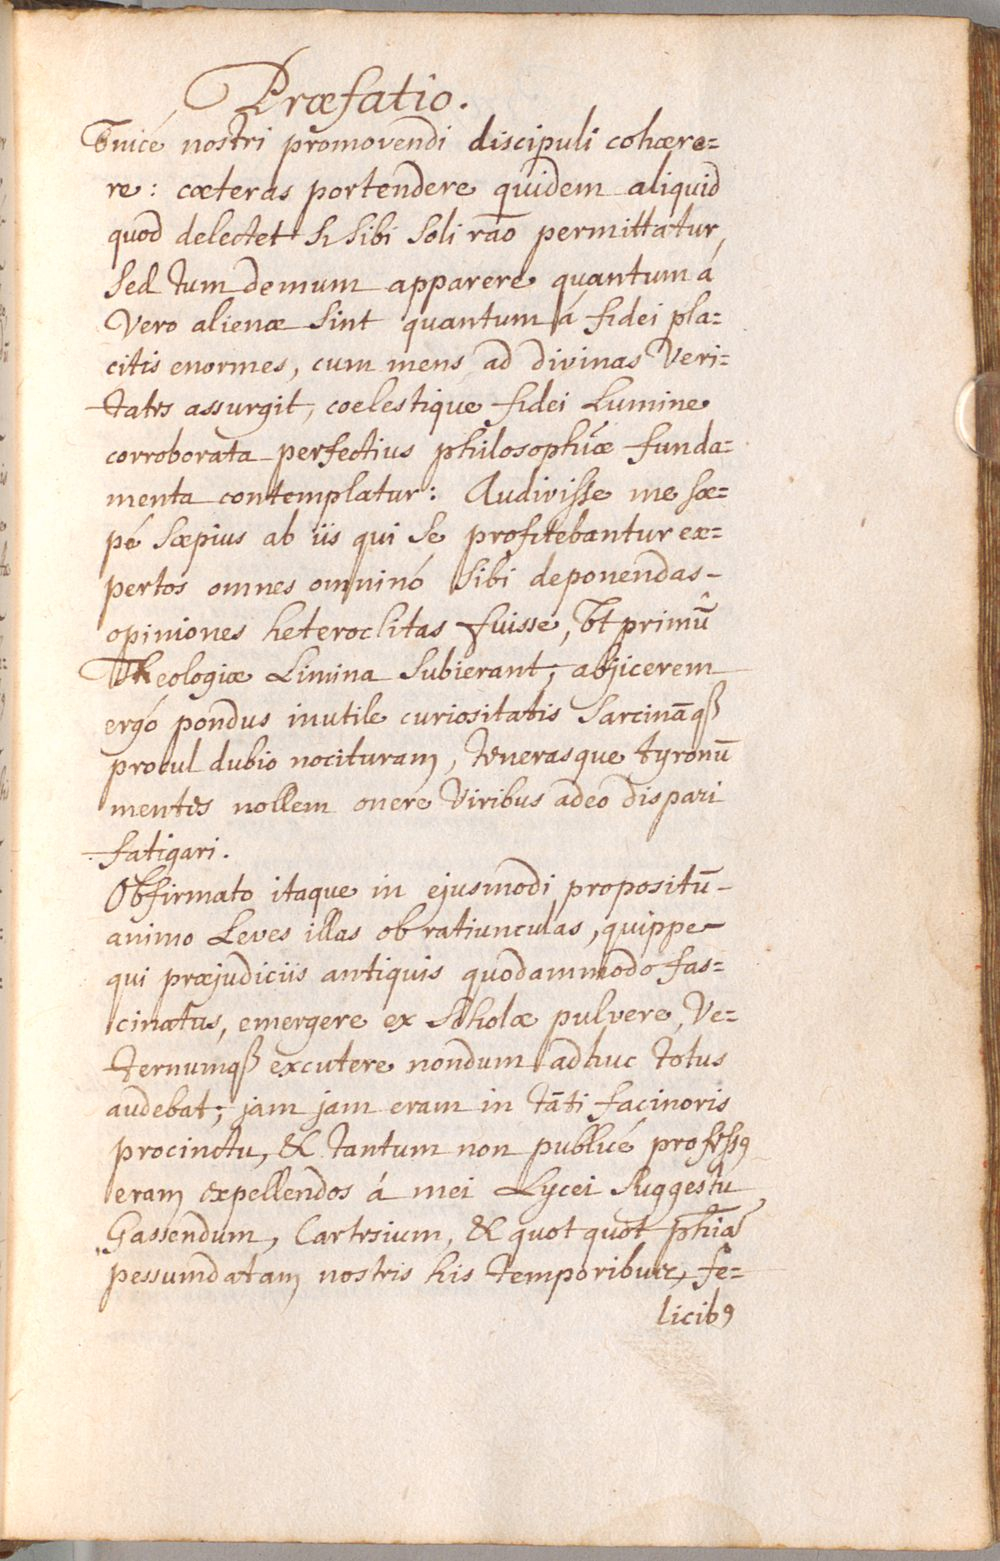 Præfatio.
Vnicé nostri promovendi discipuli cohære=
re: cæteras portendere quidem aliquid
quod delectet si sibi soli rāo permittatur,
sed tum demum apparere quantum á
vero alienæ sint quantum á fidei pla=
citis enormes, cum mens ad divinas veri=
tates assurgit, coelestique fidei Lumine
corroborata perfectius philosophiæ funda=
menta contemplatur: Audivisse me sæ=
pé sæpius ab iis qui se profitebantur ex=
pertos omnes omninó sibi deponendas
opiniones heteroclitas fuisse, Vt primū
Theologiæ Limina subierant; abjicerem
ergó pondus inutile curiositatis sarcināqꝫ
procul dubio nocituram, tenerasque tyronū
mentes nollem onere viribus adeo dispari
fatigari.
Obfirmato itaque in ejusmodi propositū
animo Leves illas ob ratiunculas, quippe
qui præjudiciis antiquis quodammodo fas=
cinatus, emergere ex scholæ pulvere, Ve=
ternumqꝫ excutere nondum adhuc totus
audebat; jam jam eram in tāti facinoris
procinctu, & tantum non publicé professꝰ
eram expellendos á mei Lycei suggestu
Gassendum, Cartesium, & quot quot phīā
pessumdatam nostris his temporibus, fe=
licibꝰ